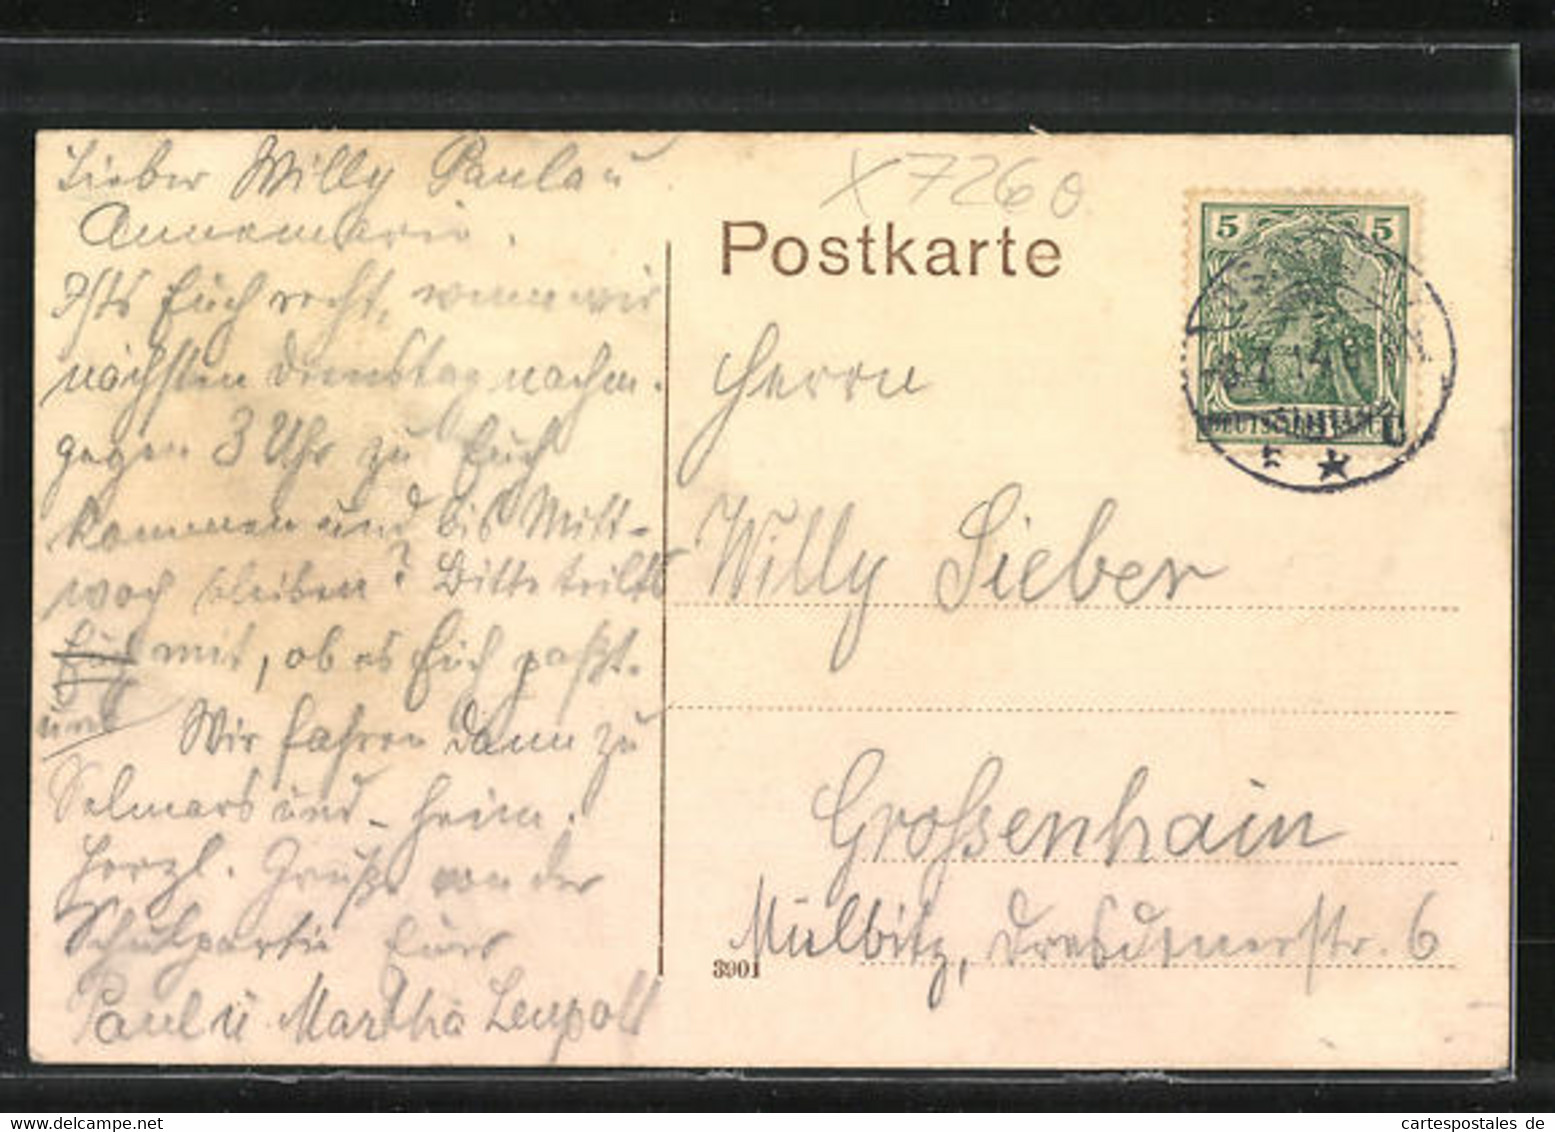 Lieber Willy Paula u
Annemarie.
Ists Euch recht, wenn wir
nächsten Dienstag nachm.
gegen 3 Uhr zu Euch
kommen und bis Mitt-
woch bleiben? Bitte teilt
Euch mit, ob es Euch paßt.
uns
Wir fahren dann zu
Selmars und - heim.
Herzl. Grüße von der
Schulpartie Eure
Paul u. Martha Leupolt
X7260
Postkarte
5 5
Herrn
Willy Sieber
Großenhain
Mülbitz, Dresdenerstr. 6
3901
cartespostales de